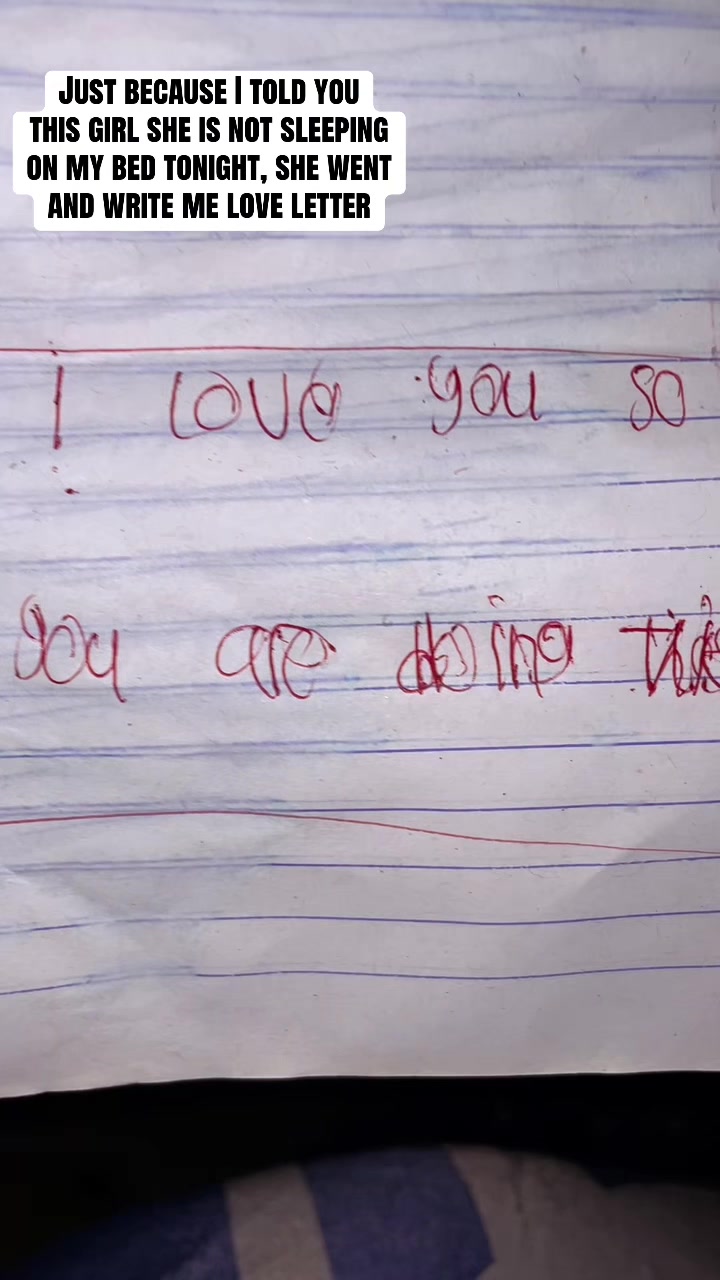 JUST BECAUSE I TOLD YOU
THIS GIRL SHE IS NOT SLEEPING
ON MY BED TONIGHT, SHE WENT
AND WRITE ME LOVE LETTER
I Love you so
you are doing